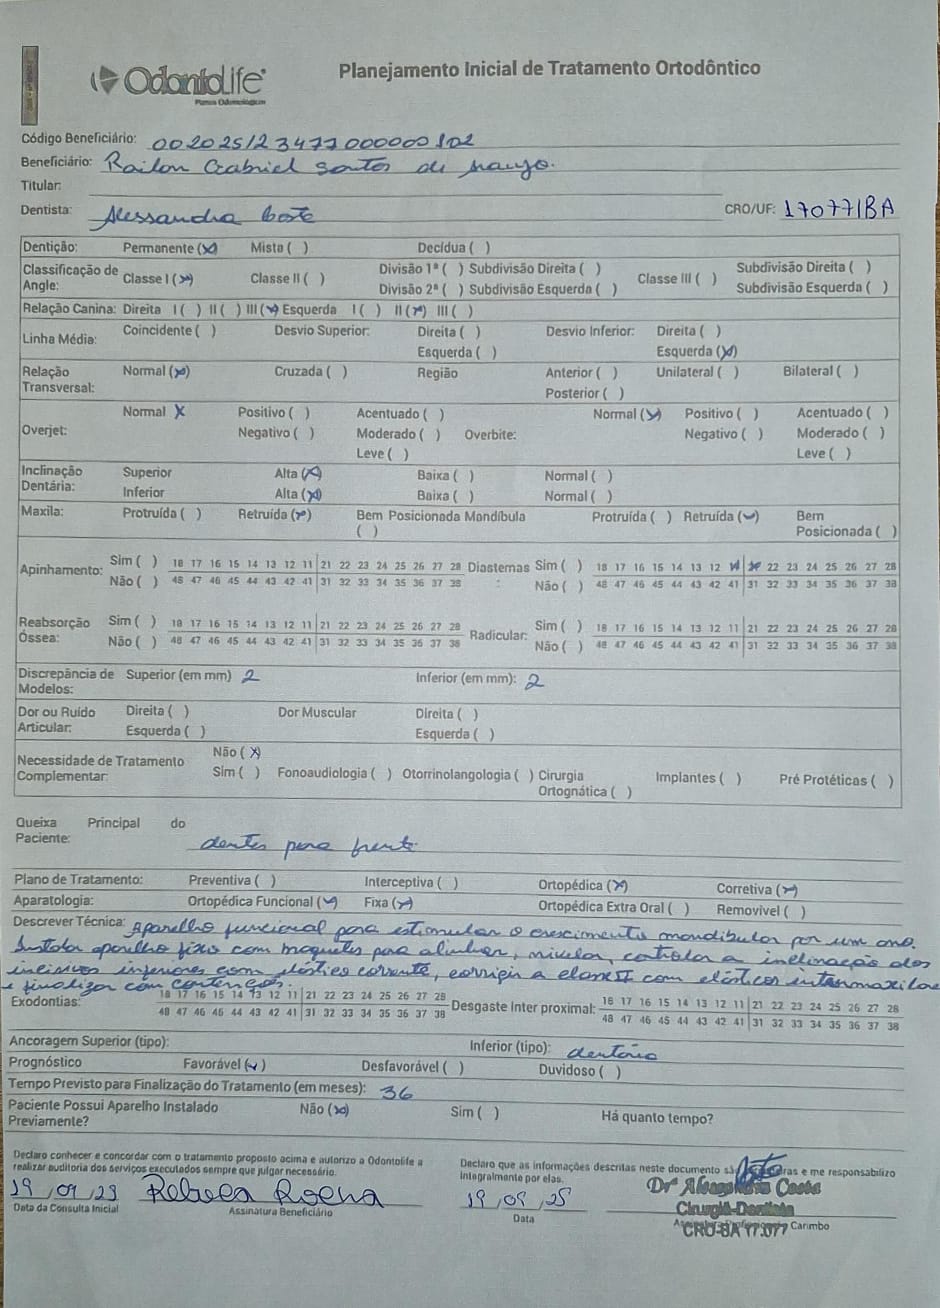 OdontoLife
Planos Odontológicos
Planejamento Inicial de Tratamento Ortodôntico
Código Beneficiário: 002025123477000000102
Beneficiário: Railon Gabriel Santos de Araujo.
Titular:
Dentista: Alessandra Costa CRO/UF: 17077/BA
Dentição: Permanente (x) Mista ( ) Decídua ( )
Classificação de Angle: Classe I (x) Classe II ( ) Divisão 1ª ( ) Subdivisão Direita ( ) Classe III ( ) Subdivisão Direita ( )
Divisão 2ª ( ) Subdivisão Esquerda ( ) Subdivisão Esquerda ( )
Relação Canina: Direita I ( ) II ( ) III (x) Esquerda I ( ) II (x) III ( )
Linha Média: Coincidente ( ) Desvio Superior: Direita ( ) Desvio Inferior: Direita ( )
Esquerda ( ) Esquerda (x)
Relação Transversal: Normal (x) Cruzada ( ) Região Anterior ( ) Unilateral ( ) Bilateral ( )
Posterior ( )
Normal X Positivo ( ) Acentuado ( ) Normal (x) Positivo ( ) Acentuado ( )
Overjet: Negativo ( ) Moderado ( ) Overbite: Negativo ( ) Moderado ( )
Leve ( ) Leve ( )
Inclinação Dentária: Superior Alta (x) Baixa ( ) Normal ( )
Inferior Alta (x) Baixa ( ) Normal ( )
Maxila: Protruída ( ) Retruída (x) Bem Posicionada ( ) Mandíbula Protruída ( ) Retruída (x) Bem Posicionada ( )
Apinhamento: Sim ( ) 18 17 16 15 14 13 12 11 21 22 23 24 25 26 27 28 Diastemas Sim ( ) 18 17 16 15 14 13 12 22 23 24 25 26 27 28
Não ( ) 48 47 46 45 44 43 42 41 31 32 33 34 35 36 37 38 Não ( ) 48 47 46 45 44 43 42 41 31 32 33 34 35 36 37 38
Reabsorção Óssea: Sim ( ) 18 17 16 15 14 13 12 11 21 22 23 24 25 26 27 28 Radicular: Sim ( ) 18 17 16 15 14 13 12 11 21 22 23 24 25 26 27 28
Não ( ) 48 47 46 45 44 43 42 41 31 32 33 34 35 36 37 38 Não ( ) 48 47 46 45 44 43 42 41 31 32 33 34 35 36 37 38
Discrepância de Modelos: Superior (em mm) 2 Inferior (em mm): 2
Dor ou Ruído Articular: Direita ( ) Dor Muscular Direita ( )
Esquerda ( ) Esquerda ( )
Necessidade de Tratamento Complementar: Não (x)
Sim ( ) Fonoaudiologia ( ) Otorrinolangologia ( ) Cirurgia Ortognática ( ) Implantes ( ) Pré Protéticas ( )
Queixa Principal do Paciente: dentes para frente
Plano de Tratamento: Preventiva ( ) Interceptiva ( ) Ortopédica (x) Corretiva (x)
Aparatologia: Ortopédica Funcional (x) Fixa (x) Ortopédica Extra Oral ( ) Removivel ( )
Descrever Técnica: Aparelho funcional para estimular o crescimento mandibular por um ano.
Instalar aparelho fixo com braquetes para alinhar, nivelar, controlar a inclinação dos
incisivos inferiores com elástico corrente, corrigir a classe II com elásticos intermaxilar
e finalizar com contenções.
Exodontias: 18 17 16 15 14 13 12 11 21 22 23 24 25 26 27 28 Desgaste Inter proximal: 18 17 16 15 14 13 12 11 21 22 23 24 25 26 27 28
48 47 46 45 44 43 42 41 31 32 33 34 35 36 37 38 48 47 46 45 44 43 42 41 31 32 33 34 35 36 37 38
Ancoragem Superior (tipo): Inferior (tipo): dentário
Prognóstico Favorável (x) Desfavorável ( ) Duvidoso ( )
Tempo Previsto para Finalização do Tratamento (em meses): 36
Paciente Possui Aparelho Instalado Previamente? Não (x) Sim ( ) Há quanto tempo?
Declaro conhecer e concordar com o tratamento proposto acima e autorizo a Odontolife a
realizar auditoria dos serviços executados sempre que julgar necessário.
Declaro que as informações descritas neste documento são e me responsabilizo
integralmente por elas.
19 09 25 Rebeca Rocha 19 09 25
Drª Alessandra Costa
Cirurgiã-Dentista
CRO-BA 17.077
Data da Consulta Inicial Assinatura Beneficiário Data Carimbo